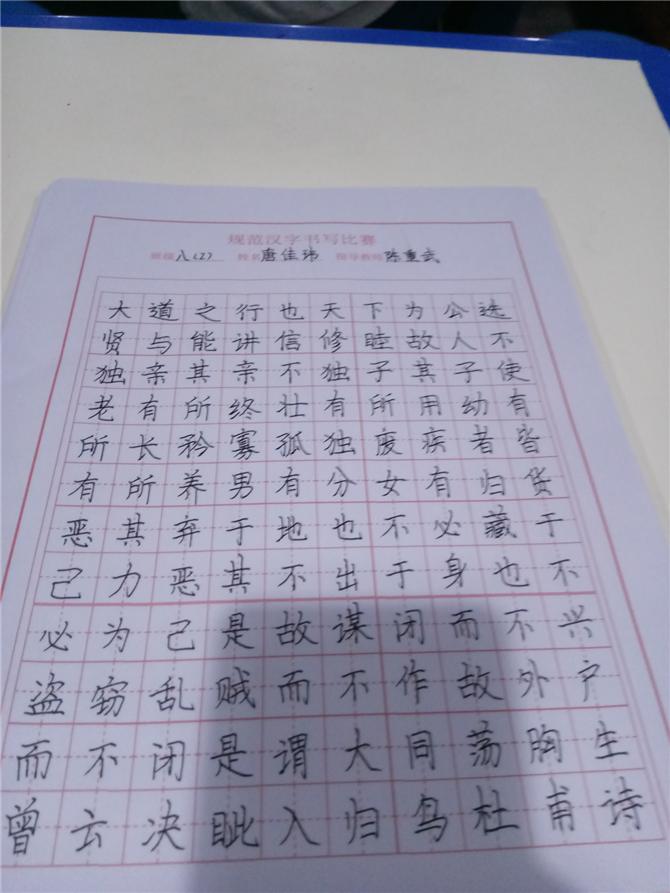 规范汉字书写比赛
班级八(2) 姓名唐佳玮 指导教师陈重武
大道之行也天下为公选
贤与能讲信修睦故人不
独亲其亲不独子其子使
老有所终壮有所用幼有
所长矜寡孤独废疾者皆
有所养男有分女有归货
恶其弃于地也不必藏于
己力恶其不出于身也不
必为己是故谋闭而不兴
盗窃乱贼而不作故外户
而不闭是谓大同荡胸生
曾云决眦入归鸟杜甫诗